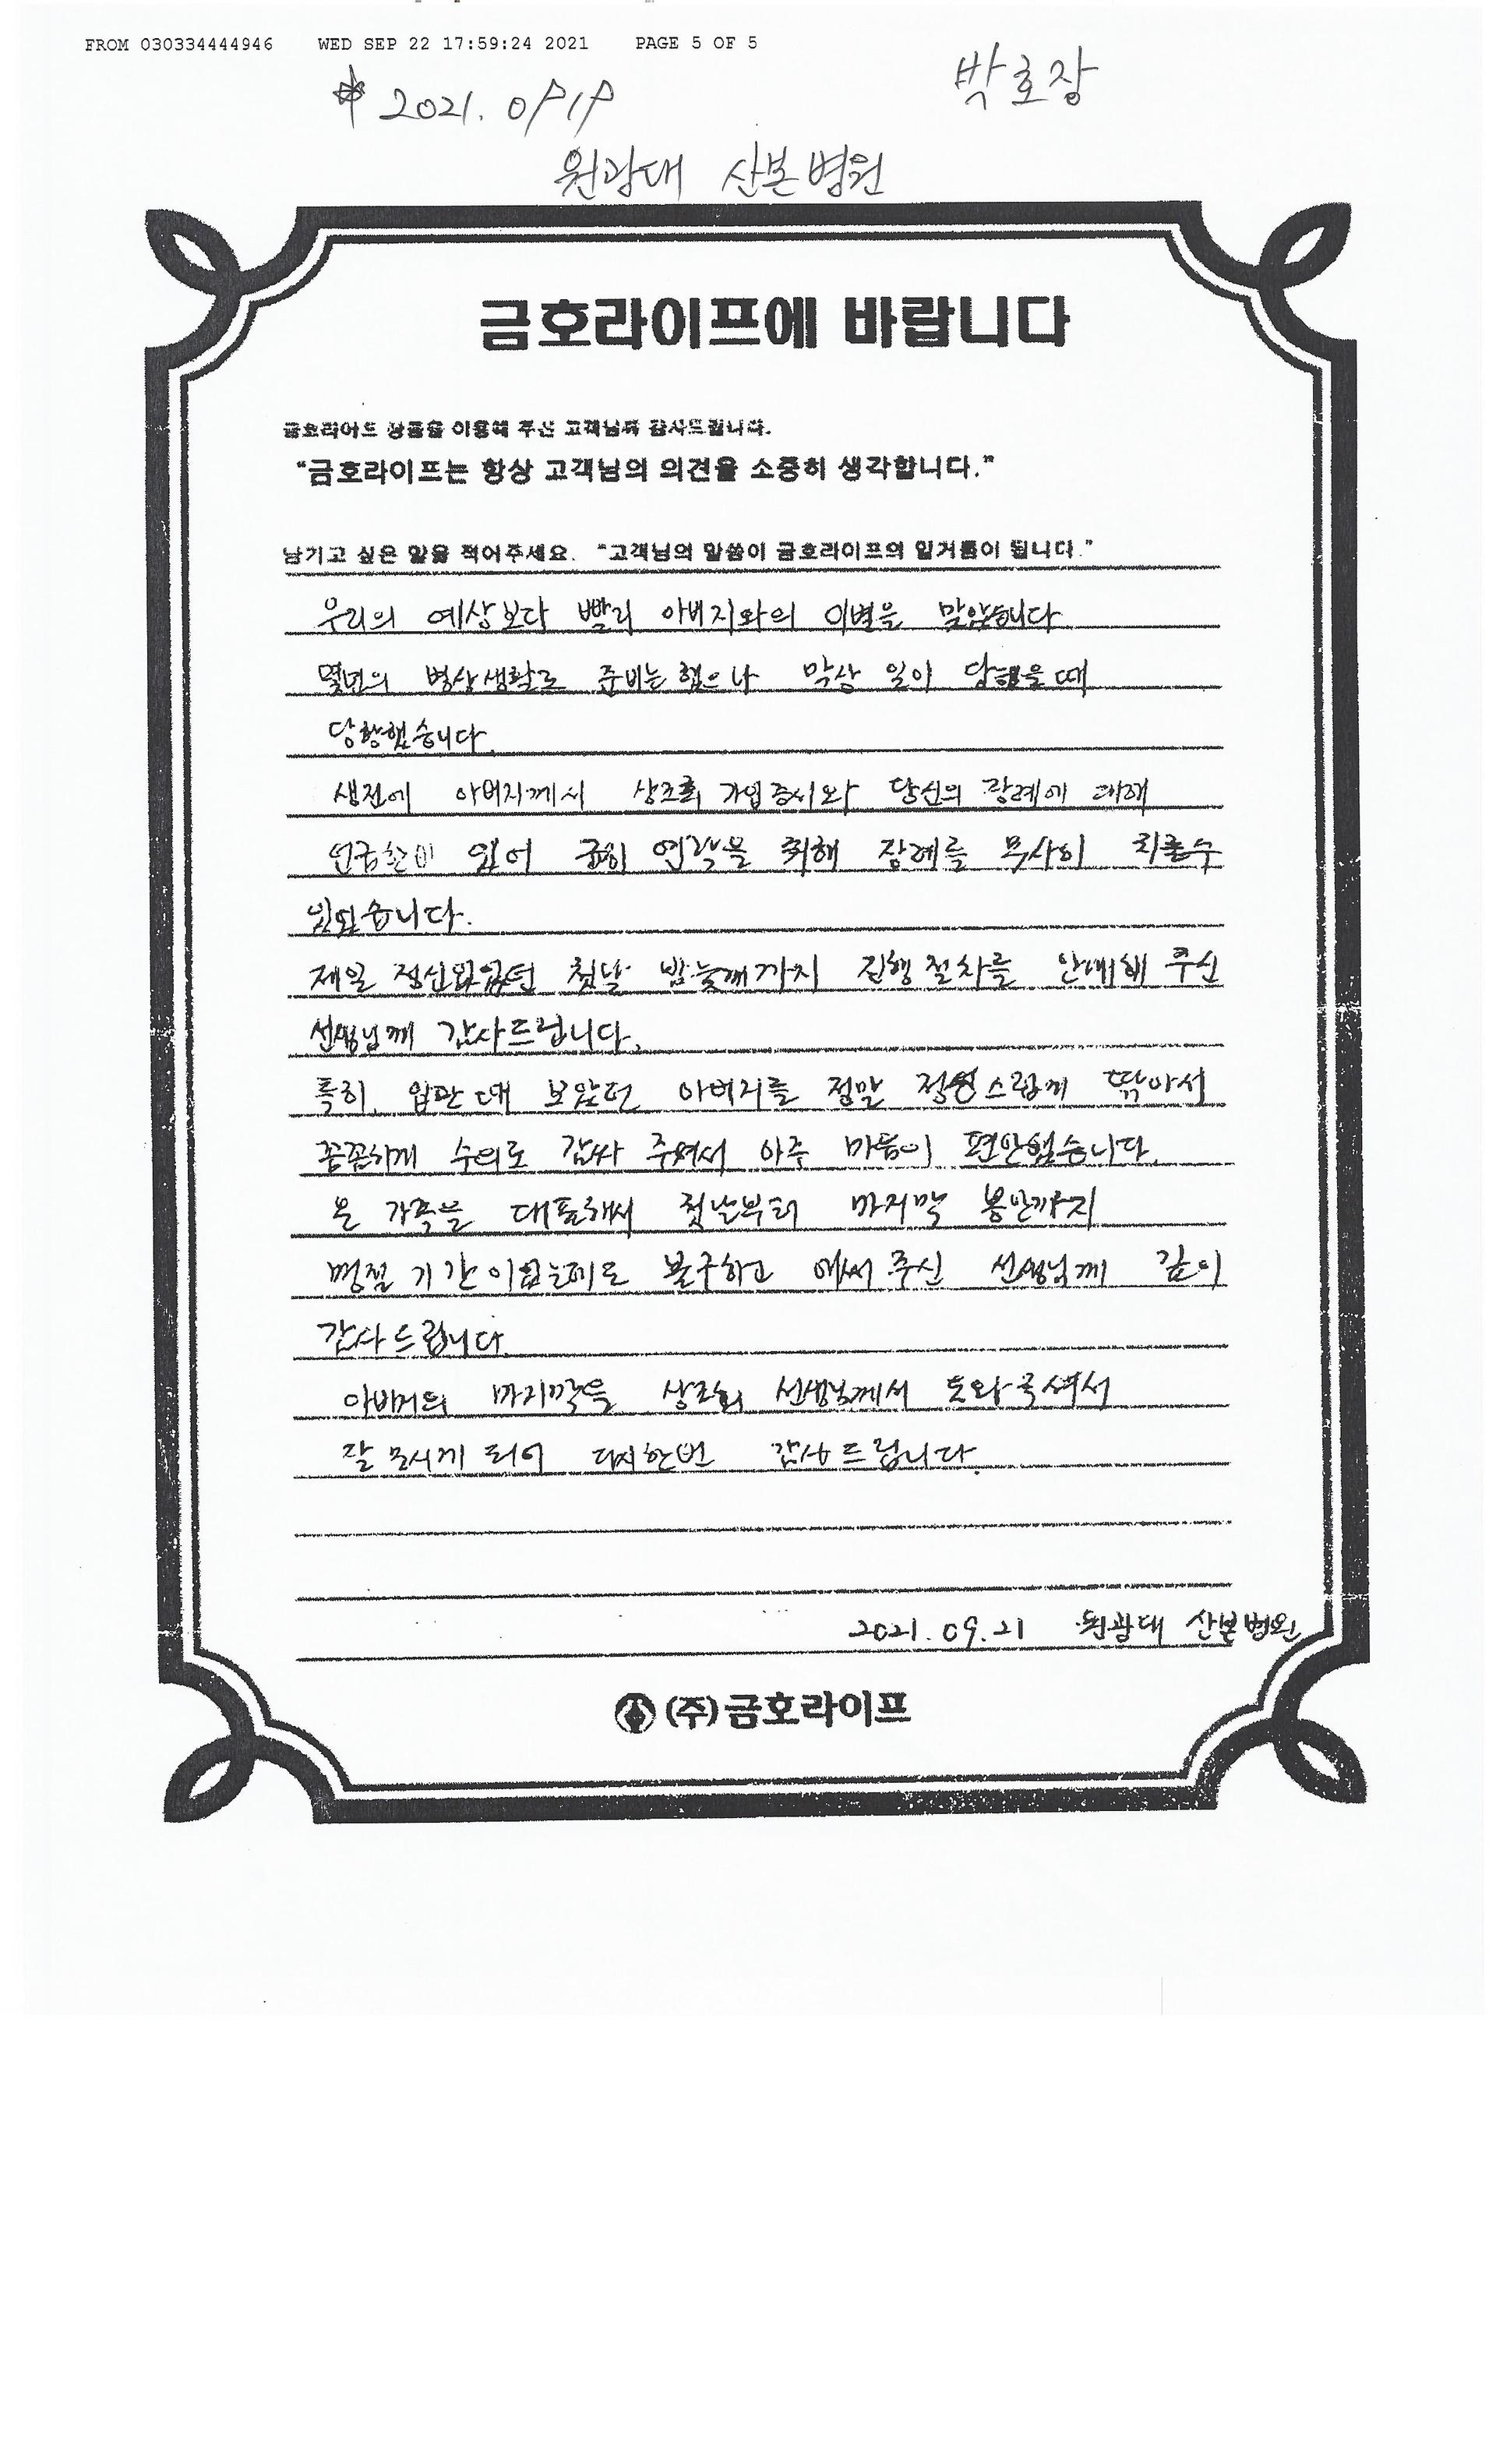 FROM 030334444946 WED SEP 22 17:59:24 2021 PAGE 5 OF 5
2021. 0919
박호장
원광대 산본병원
금호라이프에 바랍니다
상품을 이용해 주신 고객님께 감사드립니다.
“금호라이프는 항상 고객님의 의견을 소중히 생각합니다.”
남기고 싶은 말을 적어주세요. “고객님의 말씀이 금호라이프의 밑거름이 됩니다.”
우리의 예상보다 빨리 아버지와의 이별을 맞았습니다
몇년의 병상생활로 준비는 했으나 막상 일이 당했을때
당황했습니다.
생전에 아버지께서 상조회 가입증서와 당신의 장례에 대해
언급한바 있어 급히 연락을 취해 장례를 무사히 치를수
있었습니다.
제일 정신없었던 첫날 밤늦게까지 진행절차를 안내해 주신
선생님께 감사드립니다.
특히, 입관때 보았던 아버지를 정말 정성스럽게 딲아서
꼼꼼하게 수의로 감싸 주셔서 아주 마음이 편안했습니다.
온 가족을 대표해서 첫날부터 마지막 봉안까지
명절기간이었는데도 불구하고 애써주신 선생님께 깊이
감사드립니다.
아버지의 마지막을 상조회 선생님께서 도와주셔서
잘 모시게 되어 다시한번 감사드립니다.
2021.09.21 원광대 산본병원
(주)금호라이프